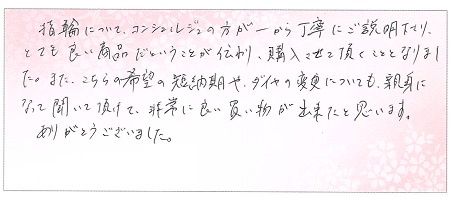 指輪について、コンシェルジュの方が一から丁寧にご説明下さり、
とても良い商品だということが伝わり、購入させて頂くこととなりまし
た。また、こちらの希望の短納期や、ダイヤの変更についても、親身に
なって聞いて頂けて、非常に良い買い物が出来たと思います。
ありがとうございました。